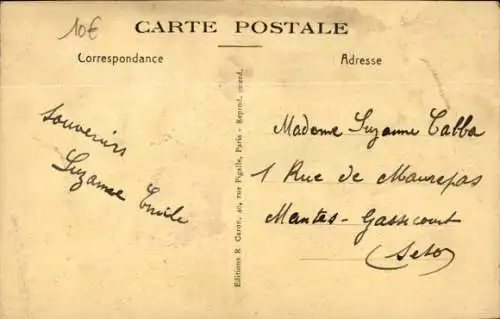 10€
CARTE POSTALE
Correspondance
Adresse
Souvenirs
Suzanne Emile
Editions R. Caron, 40, rue Pigalle, Paris - Reprod. interd.
Madame Suzanne Cabba
1 Rue de Maurepas
Mantes - Gassicourt
(Seto)